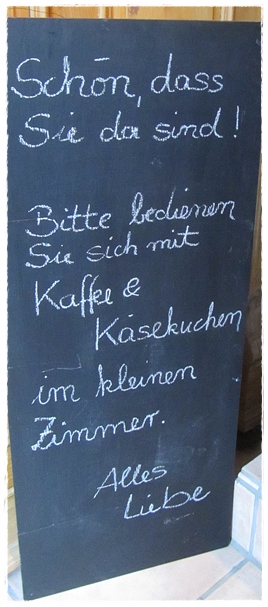 Schön, dass
Sie da sind!
Bitte bedienen
Sie sich mit
Kaffee &
Käsekuchen
im kleinen
Zimmer.
Alles
Liebe